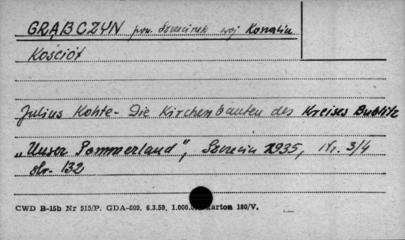 GRĄBCZYN pow. Szczecinek woj Koszalin
Kościół
Julius Kohte - Die Kirchenbauten des Kreises Bublitz
„Unser Pommerland", Szczecin 1935, Nr. 3/4
str. 132
CWD B-15b Nr 515/P. GDA-809. 6.3.59. 1.000.0 Karton 180/V.